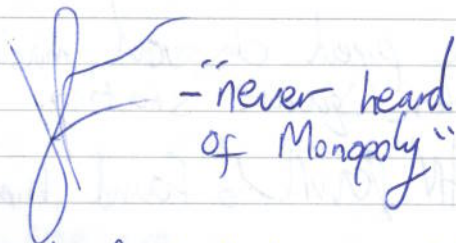 -"never heard
of Monopoly"